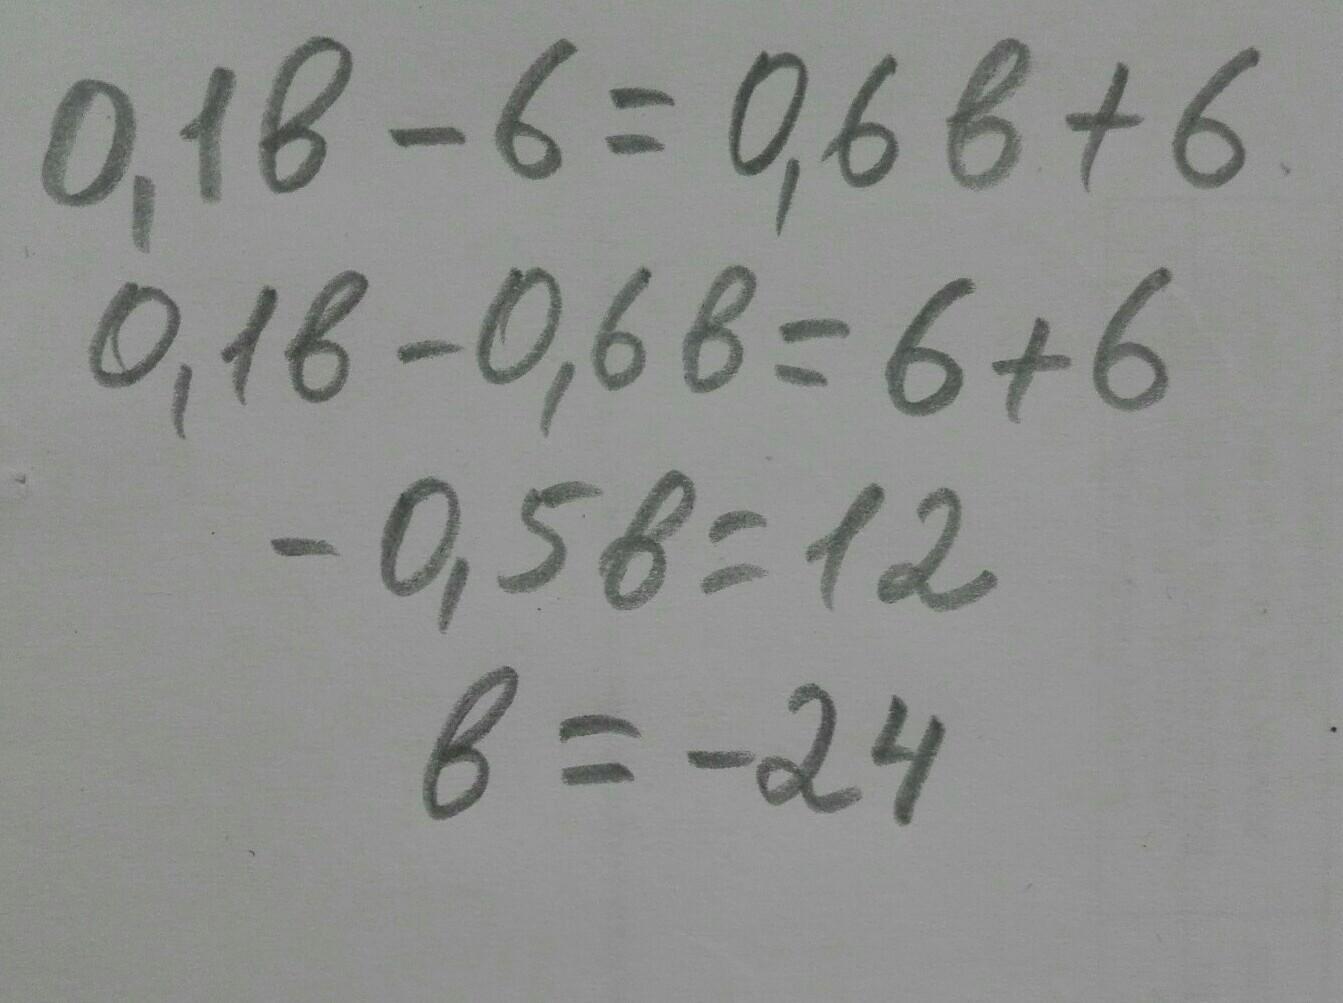 0,1в - 6 = 0,6в + 6
0,1в - 0,6в = 6 + 6
- 0,5в = 12
в = -24